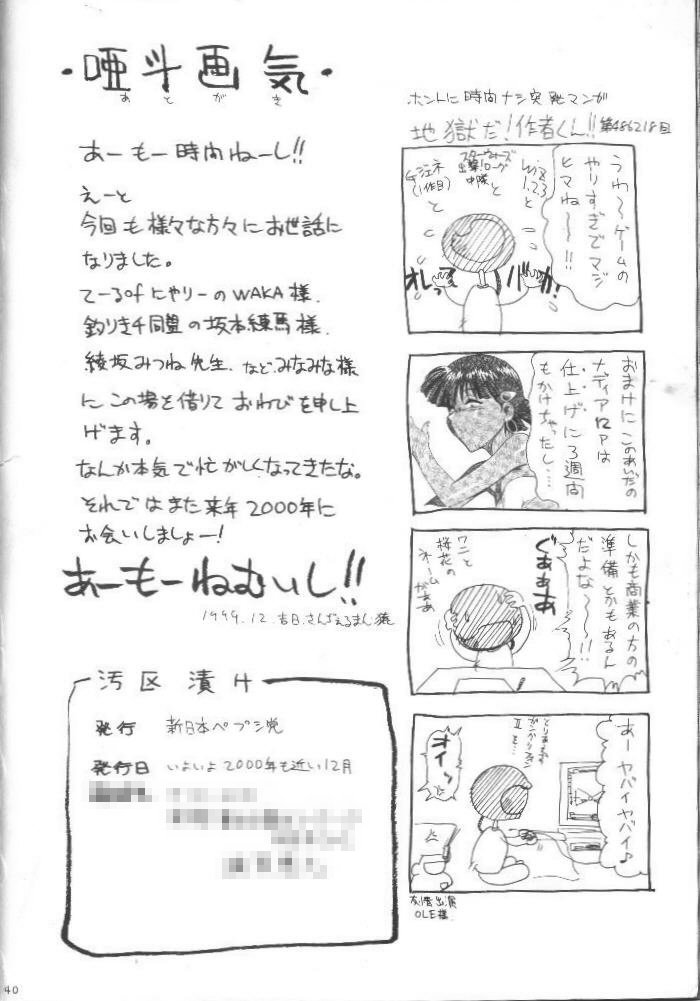 ・唖斗画気・
あとがき
あーもー時間ねーし!!
えーと
今回も様々な方々にお世話に
なりました。
てーるofにゃりーのWAKA様、
釣りキチ同盟の坂本練馬様、
綾坂みつね先生、などみなみな様
にこの場を借りておわびを申し上
げます。
なんか本気で忙がしくなってきたな。
それではまた来年2000年に
お会いしましょー!
あーもーねむいし!!
1999.12.吉日.さんぢぇるまん猿
汚区漬け
発行 新日本ペプシ党
発行日 いよいよ2000年も近い12月
ホントに時間ナシ突発マンガ
地獄だ!作者くん!!第486218回
うわ〜ゲームの
やりすぎでマジ
ヒマね〜〜!!
Wiz
1.2.3と
スターウォーズ
出撃!ローグ
中隊と
(1作目)と
オレって
バカ!
おまけにこのあいだの
ナディアロアは
仕上げに3週間
もかけちゃったし…
しかも商業の方の
準備とかもあるん
だよな〜〜!!
ぐぁぁぁ
ワニと
桜花の
ネームがぁぁ
あーヤバイヤバイ♪
とりあえず
II を…
オイッ
友情出演
OLE様
40